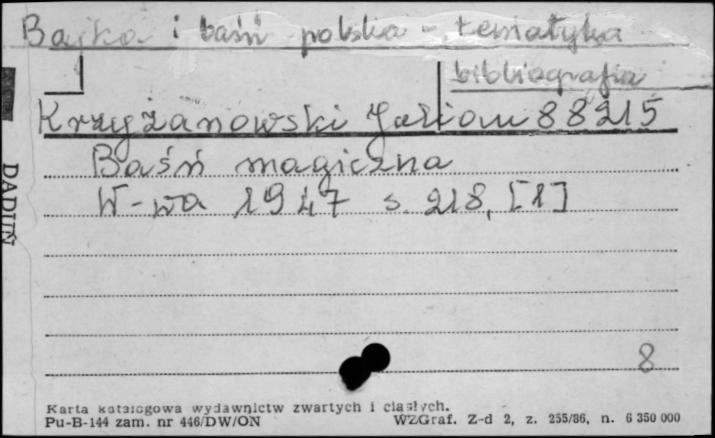 Bajka i baśń polska - tematyka
bibliografia
Krzyżanowski Julian 88215
Baśń magiczna
W-wa 1947 s. 218, [1]
8
Karta katalogowa wydawnictw zwartych i ciągłych.
Pu-B-144 zam. nr 446/DW/ON WZGraf. Z-d 2, z. 255/86, n. 6 350 000